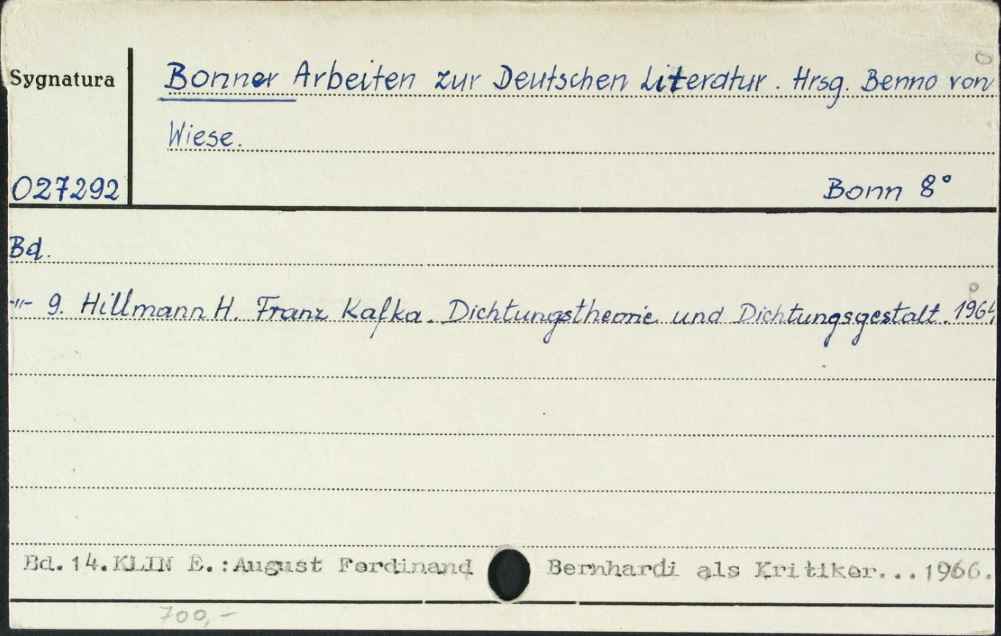 Sygnatura
Bonner Arbeiten zur Deutschen Literatur. Hrsg. Benno von
Wiese.
027292
Bonn 8°
Bd.
-"- 9. Hillmann H. Franz Kafka. Dichtungstheorie und Dichtungsgestalt. 1964
Bd.14.KLIN E.:August Ferdinand Bernhardi als Kritiker...1966.
700,-